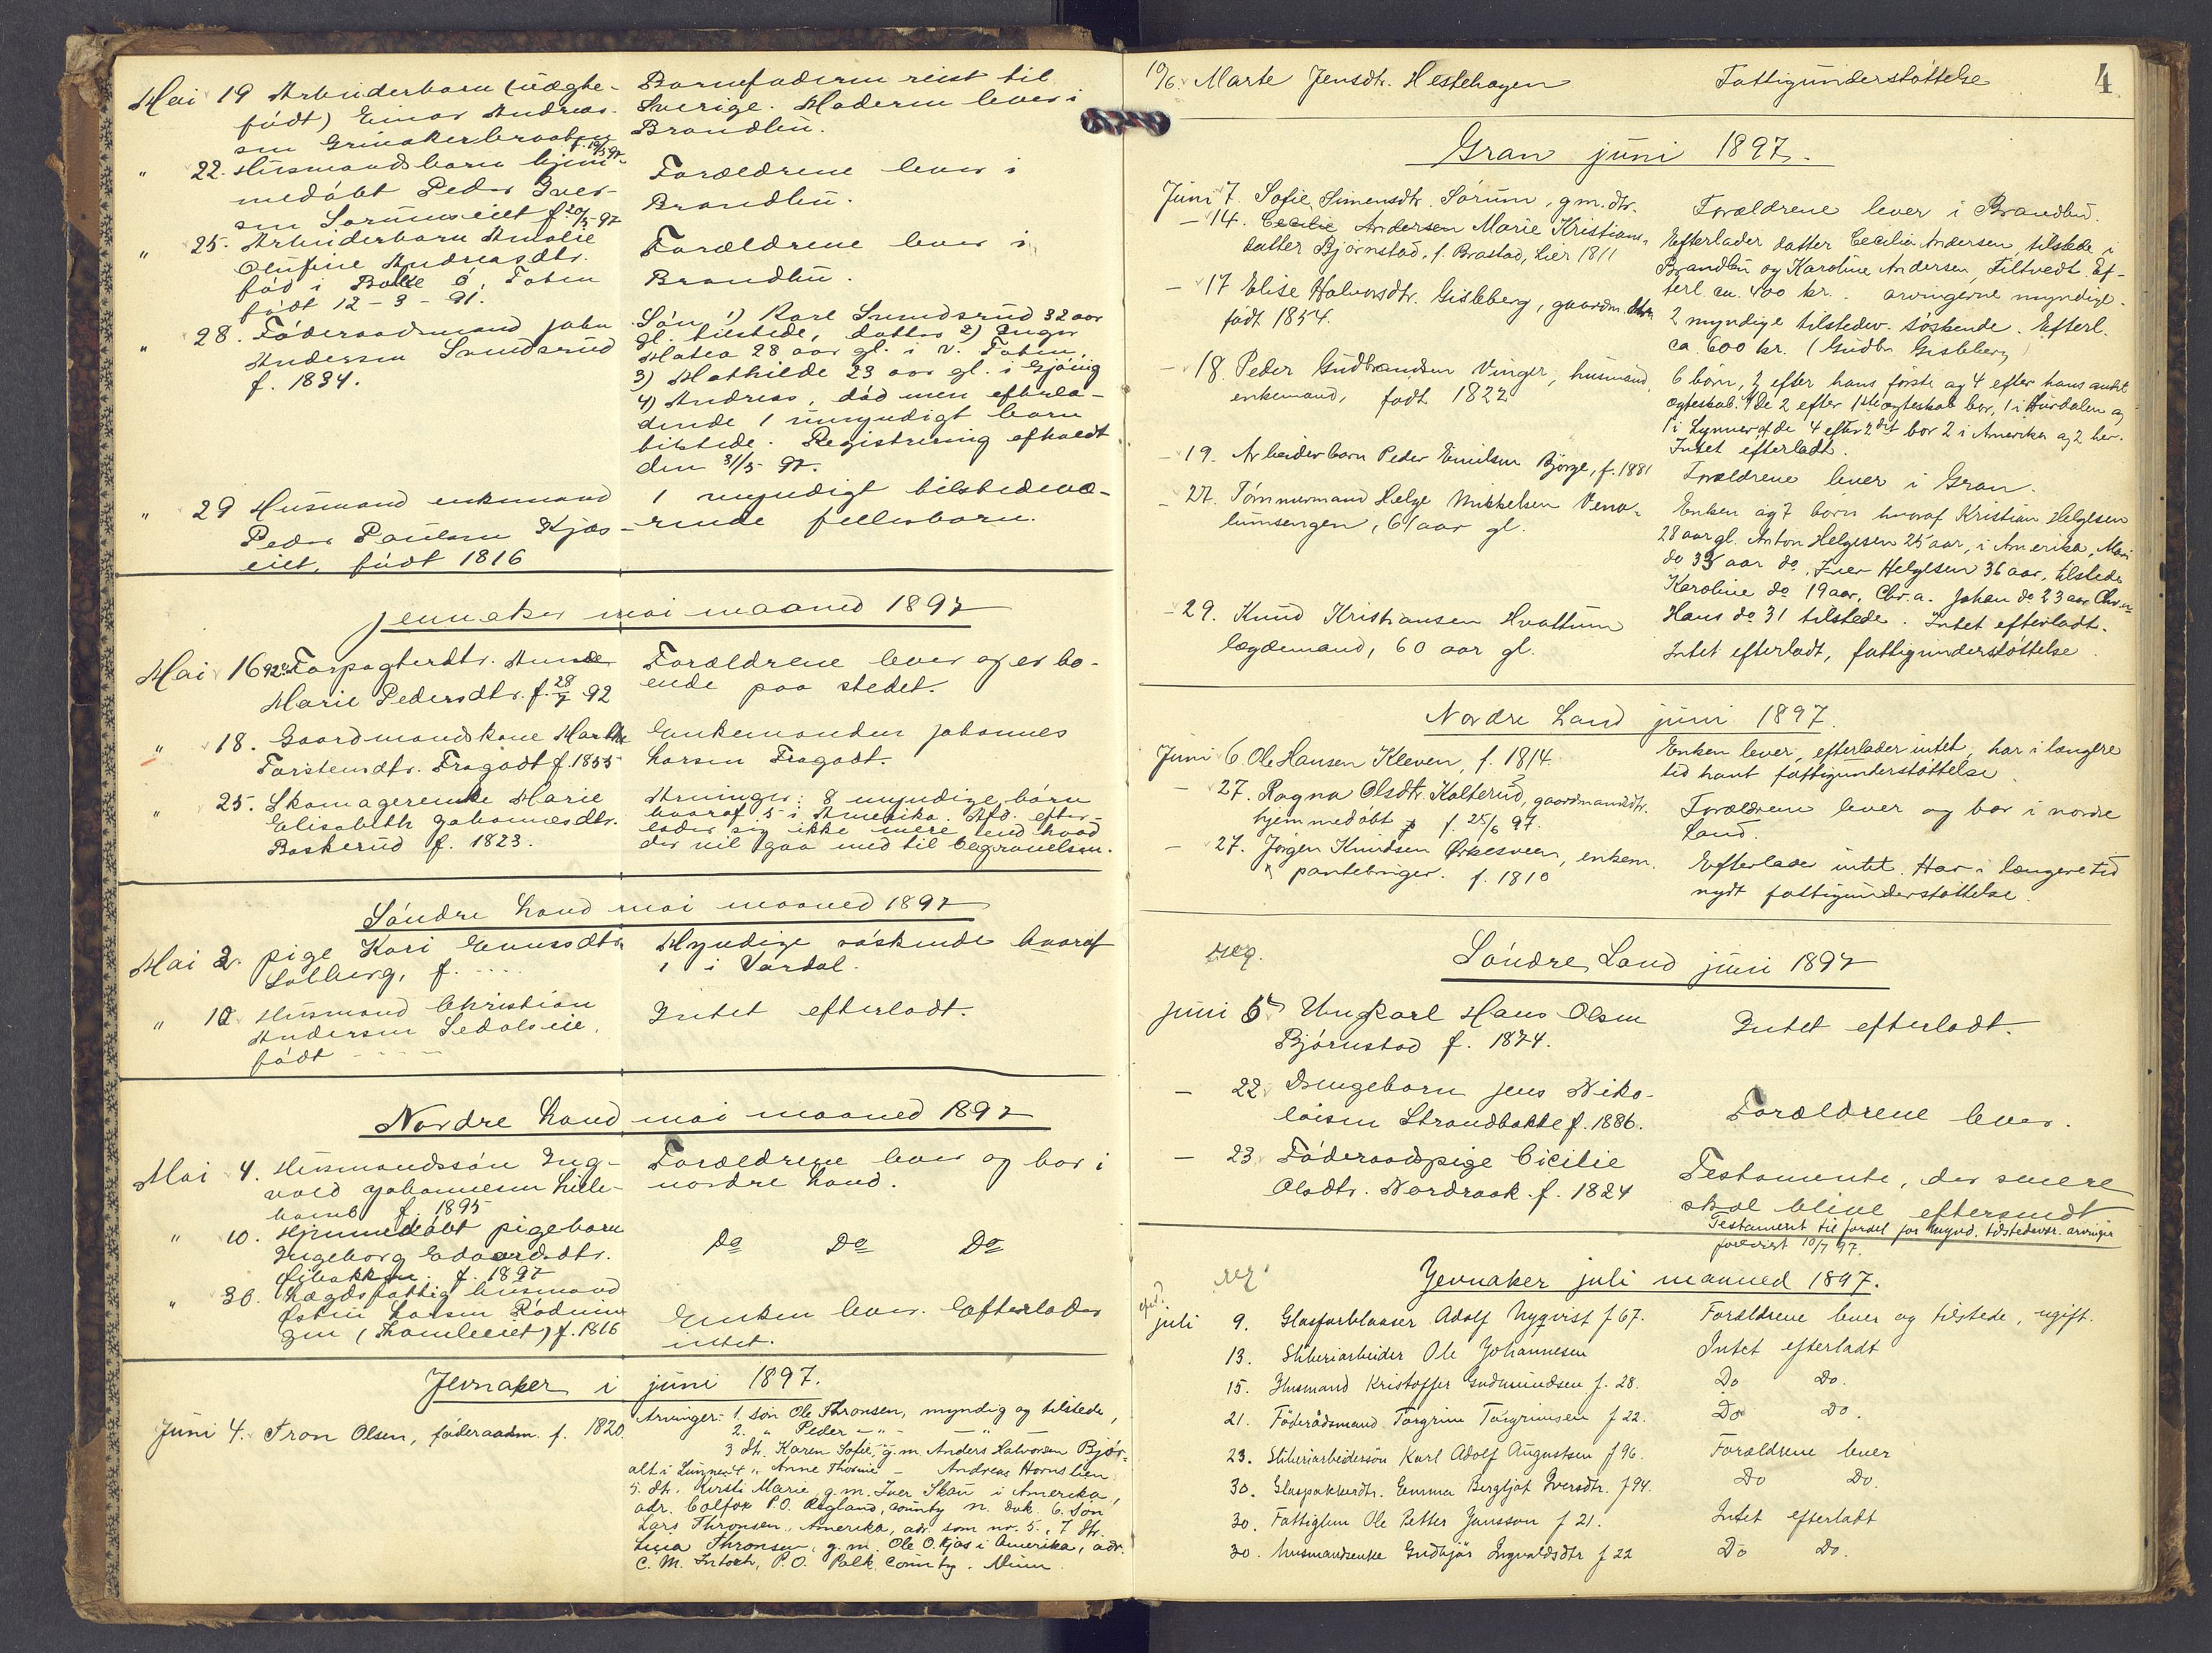 Mai 19 Arbeiderbarn (uægte-
født) Einar Andreas-
sen Grinakerbraaten
f. 19/5 97
22. Husmandsbarn hjem-
medøbt Peder Iver-
sen Sørumseiet f. 20/5-97
" 25. Arbeiderbarn Amalie
Olufine Andreasdtr.
fød i Balke Ø. Toten
født 12-3-91.
" 28. Føderaadsmand John
Andersen
f. 1834.
" 29 Husmand enkemand
Peder Paulsen Kjos-
eiet, født 1816
Barnefaderen reist til
Sverige. Moderen lever i
Brandbu.
Forældrene lever i
Brandbu.
Forældrene lever i
Brandbu.
Søn 1) Karl 32 aar
gl. tilstede, datter 2) Inger
Matea 28 aar gl. i V. Toten,
3) Mathilde 23 aar gl. i Gjøvig
4) Andreas, død men efterla-
dende 1 umyndigt barn
tilstede. Registrering afholdt
den 31/5 97.
1 myndigt tilstedevæ-
rende fellesbarn.
Jevnaker mai maaned 1897
Mai 16 Forpagterdtr. Anne
Marie Pedersdtr. f. 28/7 92
" 18. Gaardmandskone Marthe
Torstensdtr. Fragodt f. 1855
" 25. Skomagerenke Marie
Elisabeth Johannesdtr.
Baskerud f. 1823.
Forældrene lever og er bo-
ende paa stedet.
Enkemanden Johannes
Larsen Fragodt.
Arvinger: 8 myndige børn
hvoraf 5 i Amerika. Afd. efter-
lader sig ikke mere end hvad
der vil gaa med til begravelsen.
Søndre Land mai maaned 1897
Mai 2. pige Kari Evensdtr.
Solberg, f. ....
" 10 Husmand Christian
Andersen Sedalseie,
født - - - -
Myndige søskende hvoraf
1 i Vardal.
Intet efterladt.
Nordre Land mai maaned 1897
Mai 4. Husmandssøn Ing-
vald Johannesen Lille-
f. 1895
" 10. Hjemmedøbt pigebarn
Ingeborg Edvardsdtr.
f. 1897
" 30. Lægdsfattig husmand
Østen Larsen Rødnin-
gen f. 1816
Forældrene lever og bor i
nordre Land.
Do Do Do
Enken lever. Efterlader
intet.
Jevnaker i juni 1897.
Juni 4. Tron Olsen, føderaadm. f. 1820
Arvinger: 1. søn Ole Thronsen, myndig og tilstede,
2. " Peder -"- -"-
3 dtr. Karen Sofie, g.m. Anders Halvorsen Bjør-
alt i Lunner 4 " Anne Thorine - Andreas Hornslien
5. dtr. Kirsti Marie, g.m. Iver Skau i Amerika,
adr. Colfox P.O. Ragland, county n. dak. 6. søn
Lars Thronsen, Amerika, adr. som nr. 5., 7 dtr.
Lina Thronsen, g.m. Ole O. Kjos i Amerika, adr.
C. M. Intoch, P.O. Polk county. Minn.
10/6 Marte Jensdtr. Hestehagen Fattigunderstøttelse
4
Gran juni 1897.
Juni 7. Sofie Simensdtr. Sørum, gm.dtr.
- 14. Cecilie Andersen Marie Kristians-
datter Bjørnstad, f. Brastad, Lier 1811
- 17 Elise Halvorsdtr. Gisleberg, gaardm.
født 1854.
- 18. Peder Gudbrandsen Vinger, husmand,
enkemand, født 1822
- 19. Arbeiderbarn Peder Emilsen Bjørge, f. 1881
- 27. Tømmermand Helge Mikkelsen Veno-
lumsengen, 61 aar gl.
- 29. Knud Kristiansen Hvattum
lægdemand, 60 aar gl.
Forældrene lever i Brandbu.
Efterlader datter Cecilia Andersen, tilstede i
Brandbu og Karoline Andersen, Filtvedt. Ef-
terl. ca. 400 kr. arvingerne myndige.
2 myndige tilstedev. søskende. Efterl.
ca. 600 kr. (Gudbr. Gisleberg
6 børn, 2 efter hans første og 4 efter hans andet
ægteskab. De 2 efter 1ste ægteskab bor, 1 i Hurdalen og
1 i Lunner af de 4 efter 2det bor 2 i Amerika og 2 her.
Intet efterladt.
Forældrene lever i Gran.
Enken og 7 børn hvoraf Kristian Helgesen
28 aar gl. Anton Helgesen 25 aar, i Amerika, Mari
do 33 aar do. Iver Helgesen 36 aar, tilstede
Karoline do 19 aar, Chr.a. Johan do 23 aar Chr.a
Hans do 31 tilstede. Intet efterladt.
Intet efterladt, fattigunderstøttelse.
Nordre Land juni 1897.
Juni 6 Ole Hansen Kleven, f. 1814
- 27. Ragna Olsdtr. Kolterud, gaardmandsdtr.
hjemmedøbt f. 25/6 97.
- 27. Jørgen Knudsen, enkem.
pantebringer. f. 1810
Enken lever, efterlader intet, har i længere
tid havt fattigunderstøttelse.
Forældrene lever og bor i nordre
Land.
Efterlader intet. Har i længere tid
nydt fattigunderstøttelse.
reg.
Søndre Land juni 1897
Juni 5 Ungkarl Hans Olsen
Bjørnstad f. 1874.
- 22. Drengebarn Jens Niko-
laisen Strandbakke f. 1886.
- 23 Føderaadspige Cicilie
Olsdtr. Nordraak f. 1824
Intet efterladt.
Forældrene lever.
Testamente, der senere
skal blive eftersendt
Testament til fordel for mynd. tilstedevær. arvinger
forevist 10/7 97.
reg.
Jevnaker juli maaned 1897.
juli 9. Glasforblaaser Adolf Nyqvist f 67. Forældrene lever og tilstede, ugift.
13. Sliberiarbeider Ole Johannesen Intet efterladt
15. Husmand Kristoffer Gudmundsen f. 28. Do Do.
21. Føderådsmand Torgrim Torgrimsen f 22. Do Do.
23. Sliberiarbeidersøn Karl Adolf Augustsen f 96. Forældrene lever
30. Glaspakkerdtr. Emma Bergljot Iversdtr. f 94. Do Do.
30. Fattiglem Ole Petter Jansson f 21. Intet efterladt
30. Husmandsenke Gudbjør Ingvaldsdtr f 22 Do Do.